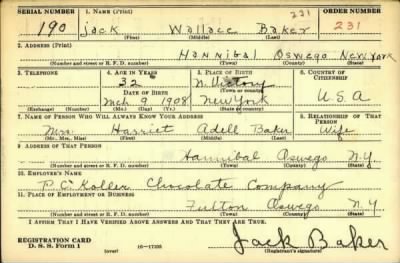 SERIAL NUMBER 1. NAME (Print) 231 ORDER NUMBER
190 Jack Wallace Baker 231
(First) (Middle) (Last)
2. ADDRESS (Print)
Hannibal Oswego New York
(Number and street or R. F. D. number) (Town) (County) (State)
3. TELEPHONE 4. AGE IN YEARS 5. PLACE OF BIRTH 6. COUNTRY OF CITIZENSHIP
32 N. Victory
DATE OF BIRTH (Town or county)
Mch 9 1908 New York U.S.A
(Exchange) (Number) (Mo.) (Day) (Yr.) (State or country)
7. NAME OF PERSON WHO WILL ALWAYS KNOW YOUR ADDRESS 8. RELATIONSHIP OF THAT PERSON
Mrs. Harriet Adell Baker Wife
(Mr., Mrs., Miss) (First) (Middle) (Last)
9. ADDRESS OF THAT PERSON
Hannibal Oswego N.Y.
(Number and street or R. F. D. number) (Town) (County) (State)
10. EMPLOYER'S NAME
Chocolate Company
11. PLACE OF EMPLOYMENT OR BUSINESS
Fulton Oswego N.Y
(Number and street or R. F. D. number) (Town) (County) (State)
I AFFIRM THAT I HAVE VERIFIED ABOVE ANSWERS AND THAT THEY ARE TRUE.
REGISTRATION CARD
D. S. S. Form 1 (over) 16—17105 Jack Baker
(Registrant's signature)